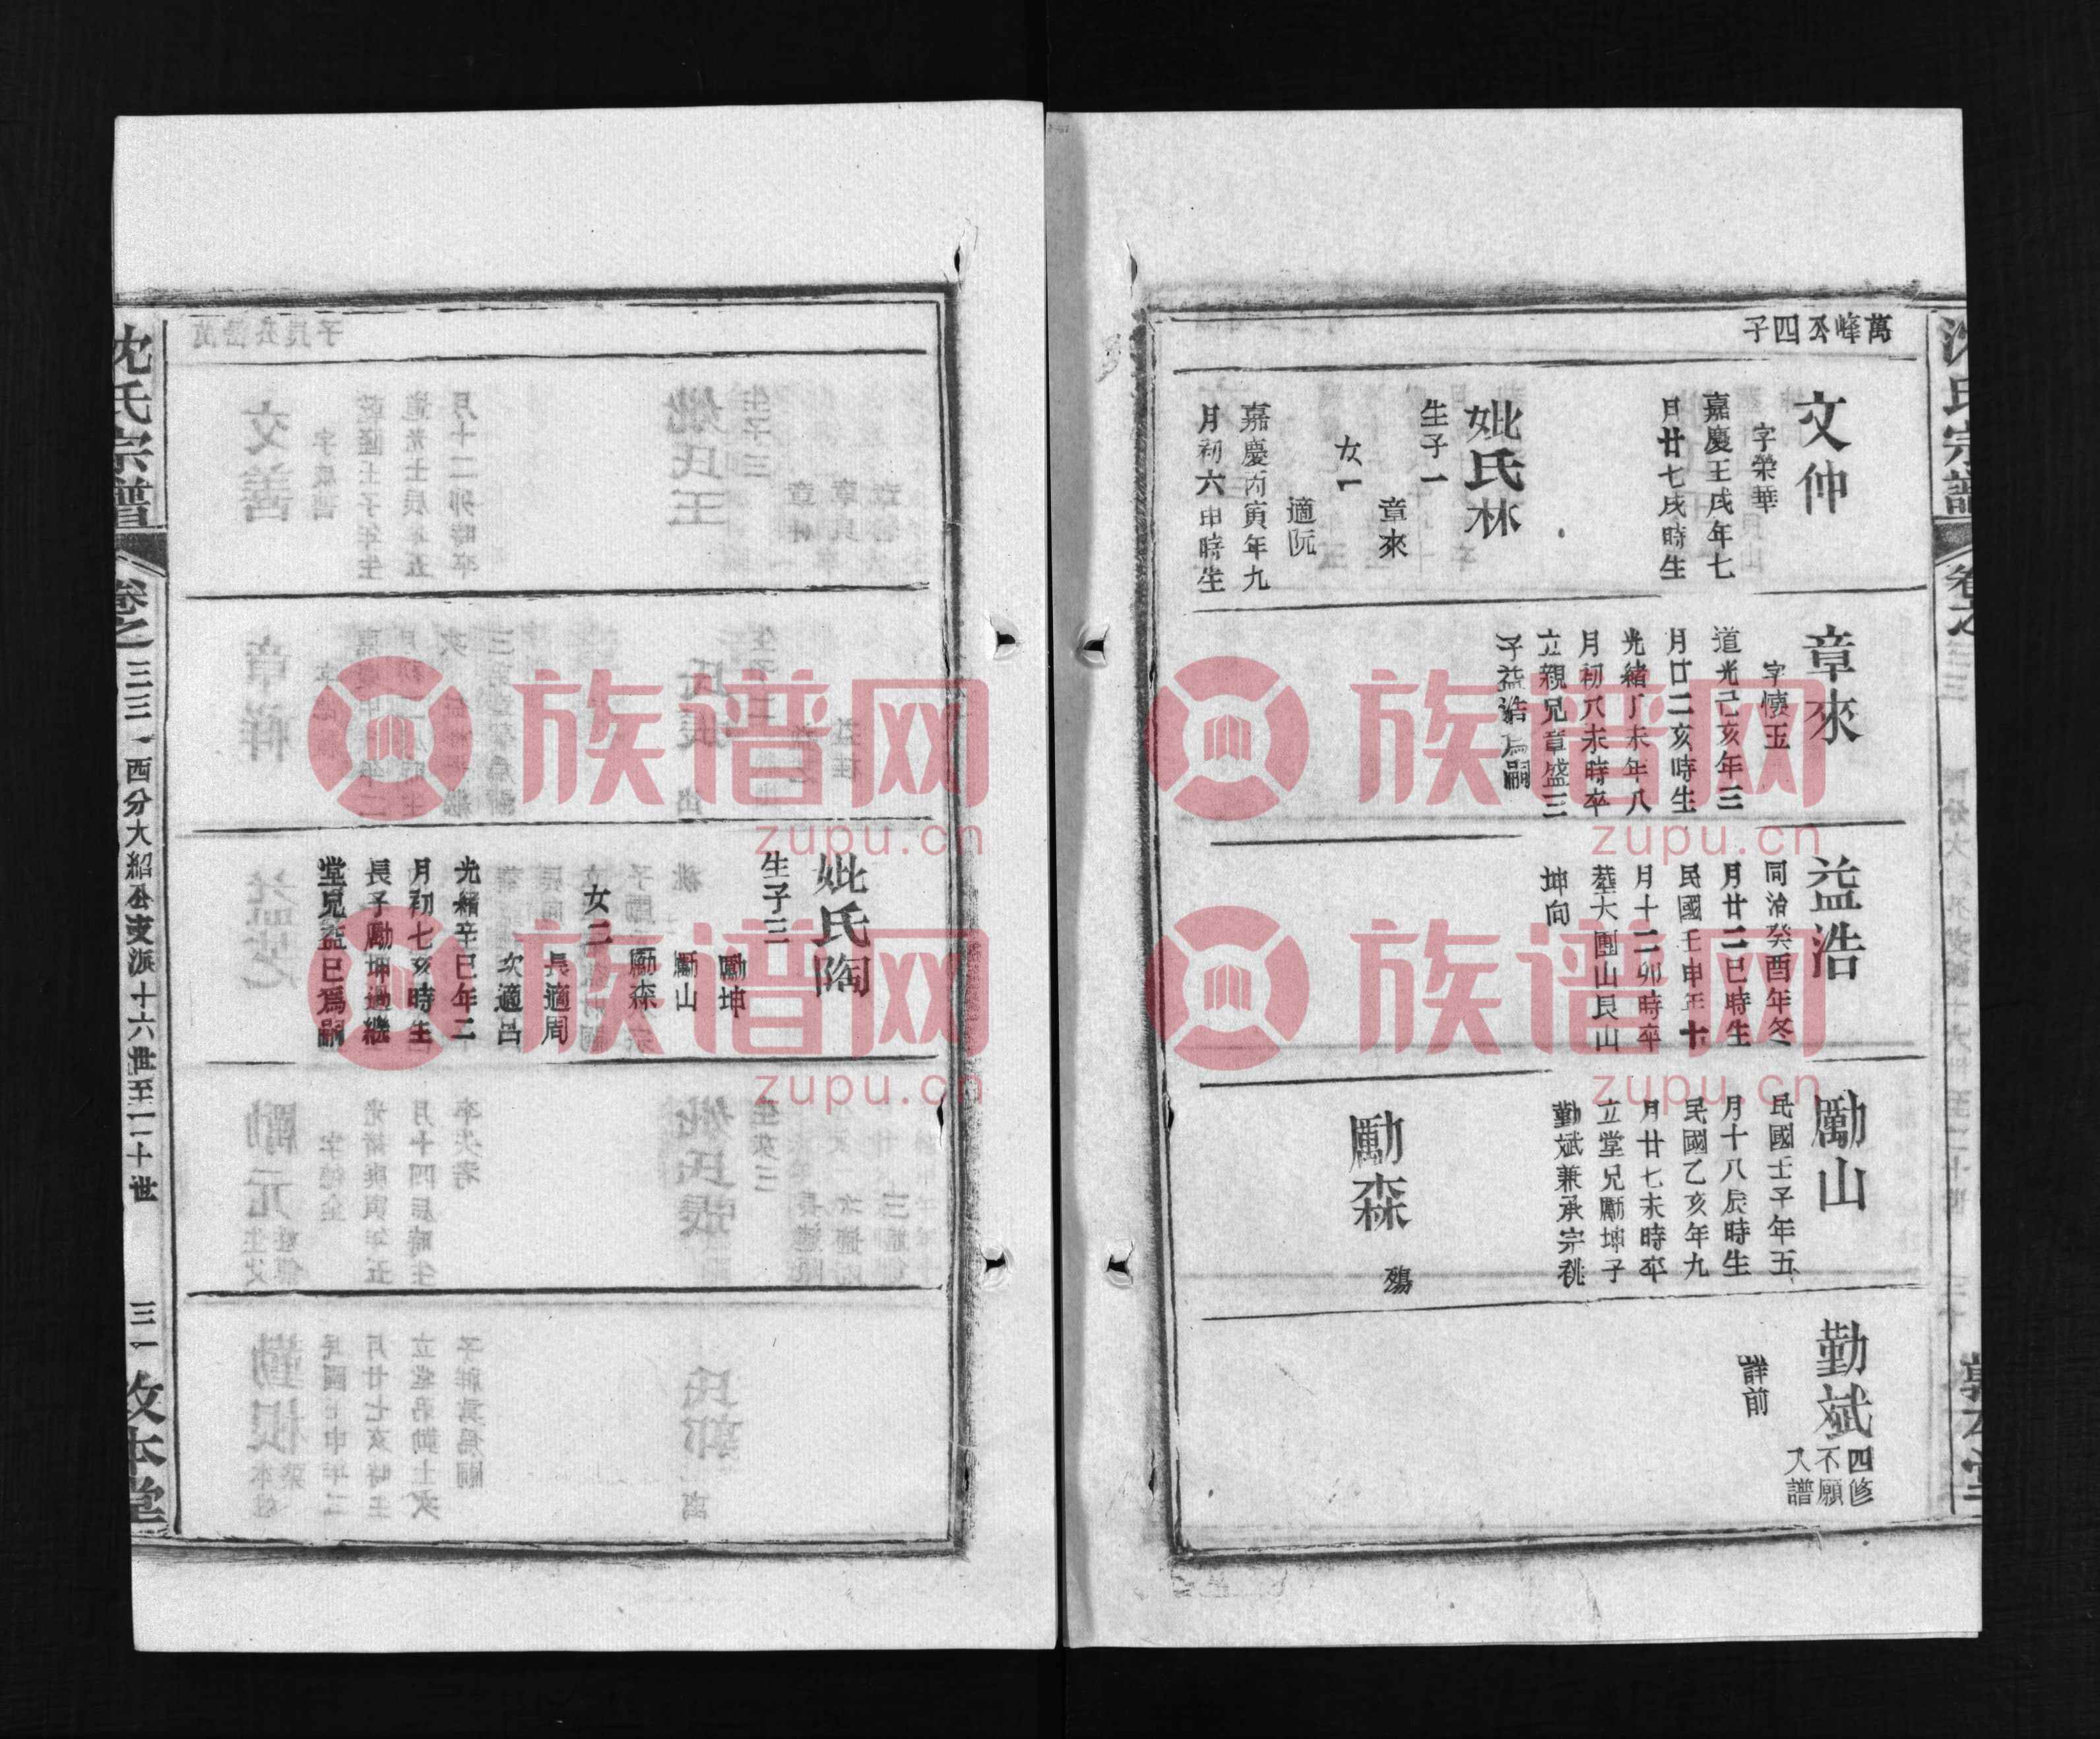 萬峰公四子
文仲
字榮華
嘉慶壬戌年七
月廿七戌時生
妣氏林
生子一
章來
女一
適阮
嘉慶丙寅年九
月初六申時生
章來
字懷玉
道光己亥年三
月廿二亥時生
光緒丁未年八
月初八未時卒
立親兄章盛三
子益浩爲嗣
益浩
同治癸酉年冬
月廿二巳時生
民國壬申年十
月十二卯時卒
塟大團山艮山
坤向
勵山
民國壬子年五
月十八辰時生
民國乙亥年九
月廿七未時卒
立堂兄勵坤子
勤斌兼承宗祧
勵森
殤
勤斌
四修
不願
入譜
詳前
妣氏陶
生子三
勵坤
勵山
勵森
女二
長適周
次適呂
光緒辛巳年二
月初七亥時生
長子勵坤過繼
堂兄益巳爲嗣
沈氏宗譜
卷之三三
西分大紹公支派十六世至二十世
三一
敦本堂